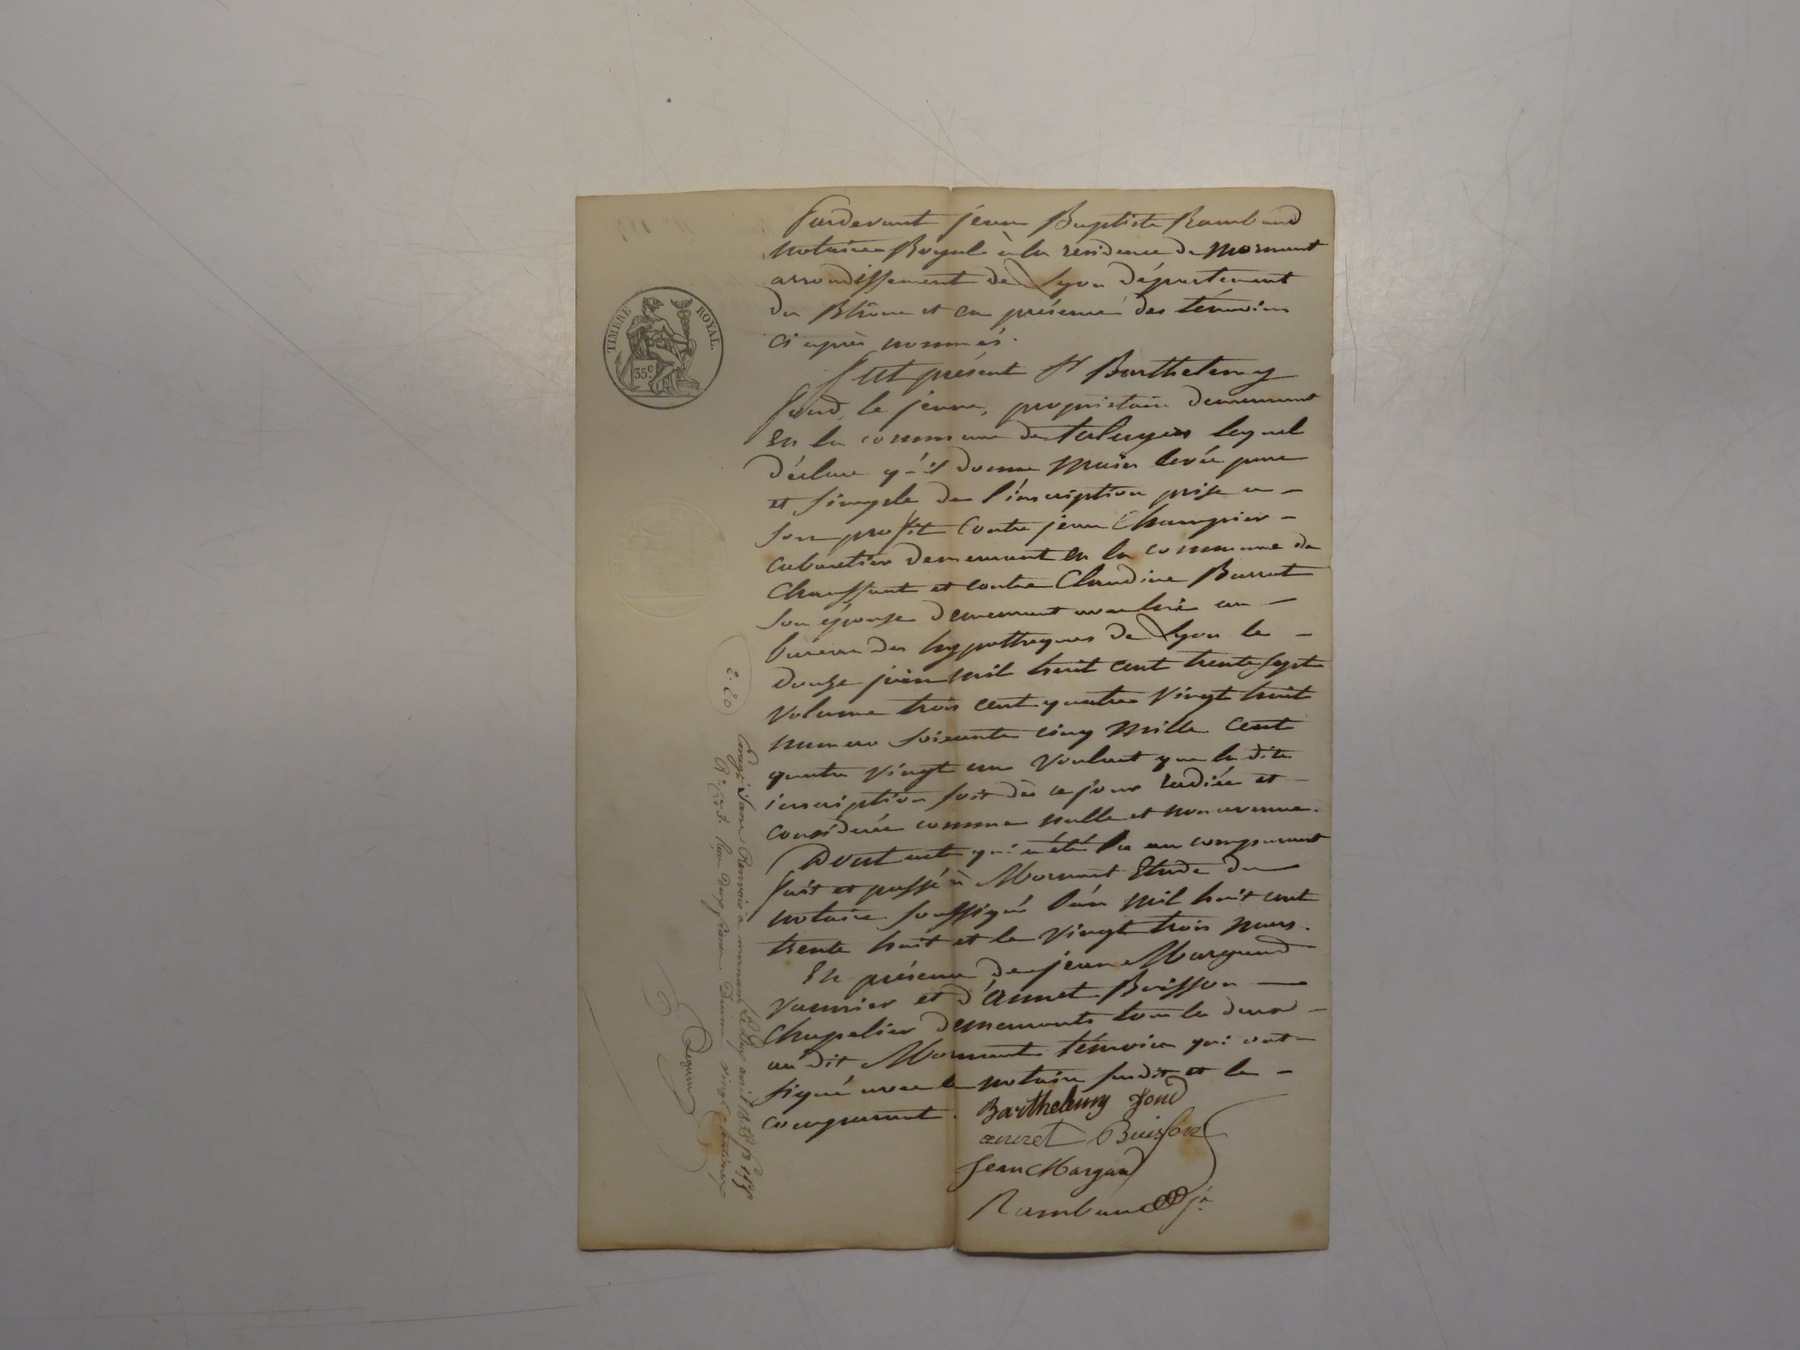 TIMBRE ROYAL.
35 c.
Pardevant jean Baptiste Rambaud
notaire Royal à la résidence de Mornant
arrondissement de Lyon département
du Rhône et en présence des témoins
ci après nommés.
fut présent Sr Barthelemy
fond, le jeune, propriétaire demeurant
en la commune de taluyers lequel
déclare qu'il donne main levée pure
et simple de l'inscription prise a -
son profit contre jean Champier -
cabaretier demeurant en la commune de
Chaussant et contre Claudine Barrat
son épouse demeurant avec lui au -
bureau des hypothèques de Lyon le -
douze juin mil huit cent trente sept
volume trois cent quatre vingt huit
numero soixante cinq mille cent
quatre vingt un voulant que la dite
inscription soit dès ce jour radiée et -
considerée comme nulle et non avenue.
Dont acte qui a été lu au comparant
fait et passé à Mornant Etude du
notaire soussigné l'an mil huit cent
trente huit et le vingt trois mars.
En présence de jean Margand
vannier et d'annet Buisson
chapelier demeurants tous les deux -
au dit Mornant témoins qui ont -
signé avec le notaire susdit et le -
comparant.
Barthelemy fond
annet Buisson
Jean Margand
Rambaud
2.20
Enregé sans Renvois à mornant le deux avril 1838
Reçu deux francs Decime vingt centimes